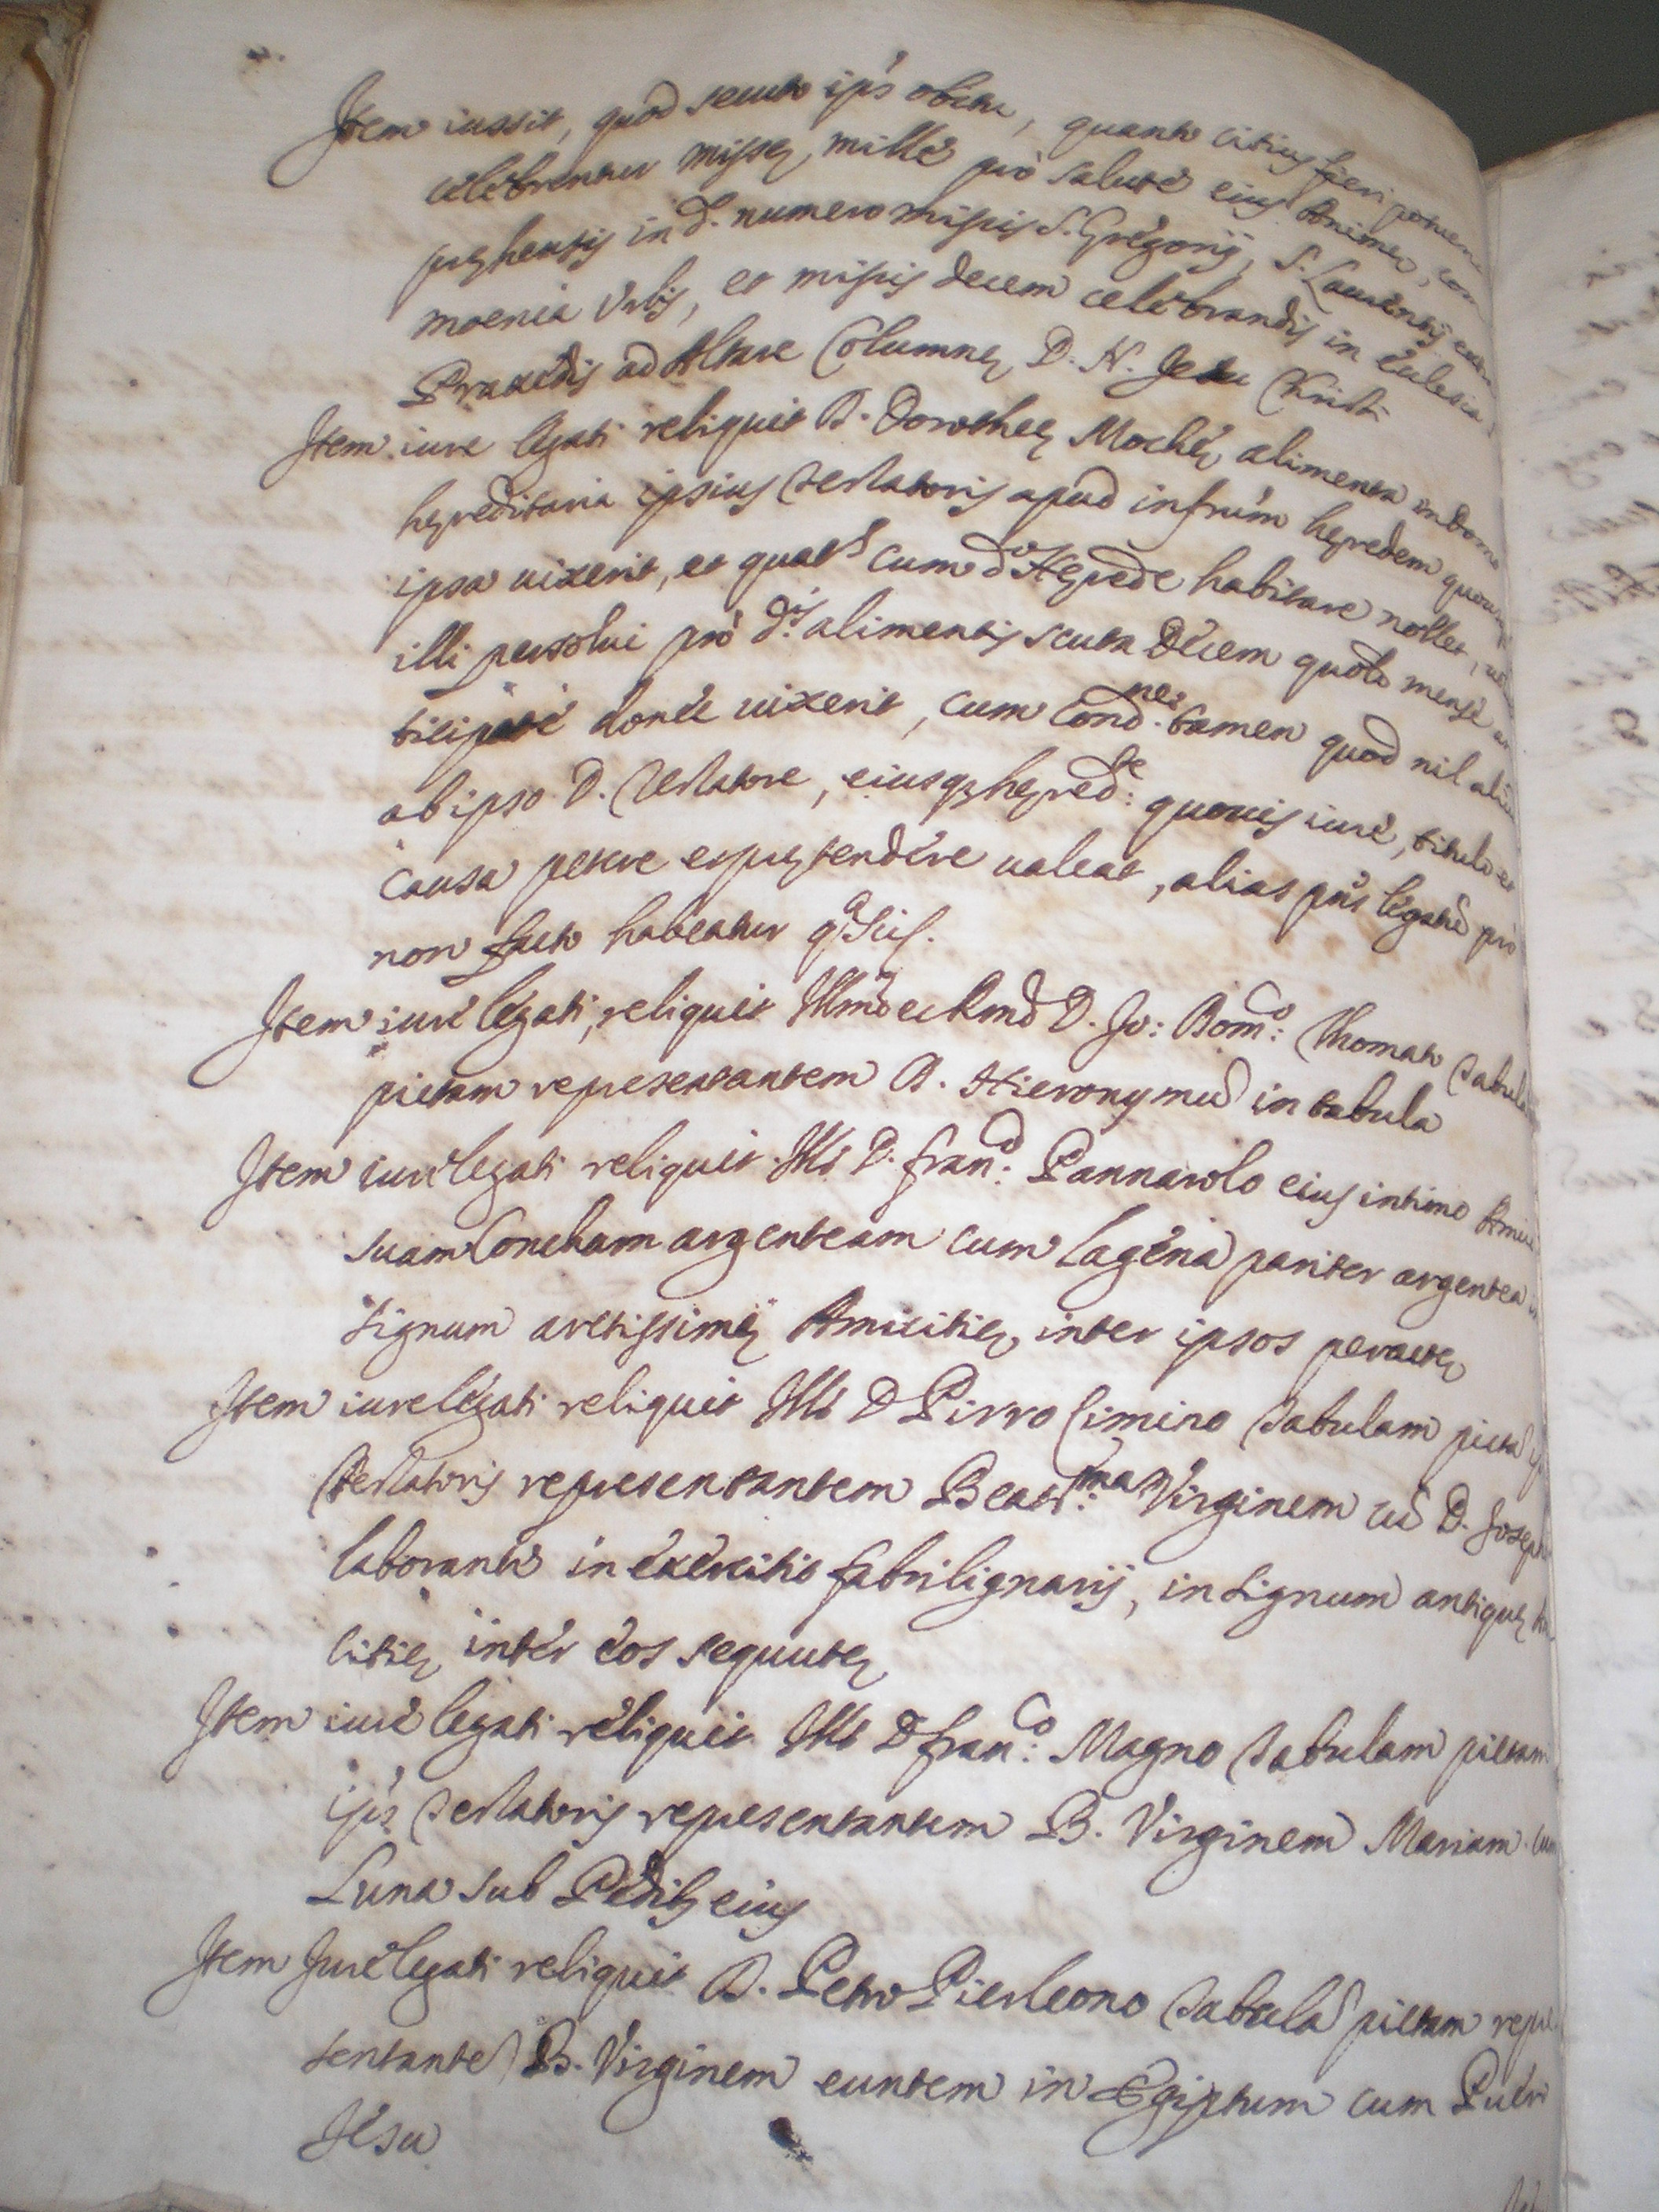 Item iussit, quod secuto ips obitu, quanto citius fieri poterit
celebrentur missę mille pro salute eius Animę, com
pręhensis in d. numero missis S. Gregorij, S. Laurentij extra
moenia Urbis, et missis decem celebrandis in Ecclesia S.
Praxedis ad Altare Columnę D. N. Jesu Christi
Item iure legati reliquit D. Dorotheę Mochę alimenta in domo
hęreditaria ipsius Testatoris apud infrūm hęredem quousq
ipsa uixerit, et quats cum do Hęrede habitare nollet,
illi persolui pro dis alimentis scuta Decem quolt mense an
ticipate donec uixerit, cum Condne tamen quod nil aliud
ab ipso D. Testatore, eiusq; hęredte quouis iure, titulo et
causa petere et prętendere ualeat, alias pns legatū pro
non facto habeatur qa sic.
Item iure legati, reliquit Illmo ec Rmo D. Jo: Domco: Thomato Tabulā
pictam representantem D. Hieronymū in tabula
Item iure legati reliquit Illi D. Franco: Pannarolo eius intimo Amico
suam Concham argenteam cum Lagena pariter argentea in
signum arctissimę Amicitię, inter ipsos peractę
Item iure legati reliquit Illi D Pirro Cimino Tabulam pictā
Testatoris representantem Beatmam: Virginem cū D. Joseph
laborante in exercitio fabrilignarij, in signum antiquę Ami
citię inter eos sequutę
Item iure legati reliquit Illi D Franco: Magno Tabulam pictam
ips Testatoris representantem B. Virginem Mariam cum
Luna sub Pedibs eius
Item Jure legati reliquit D. Petro Pierleono Tabulā pictam repre
sentantē B. Virginem euntem in Egiptum cum Puero
Jesu